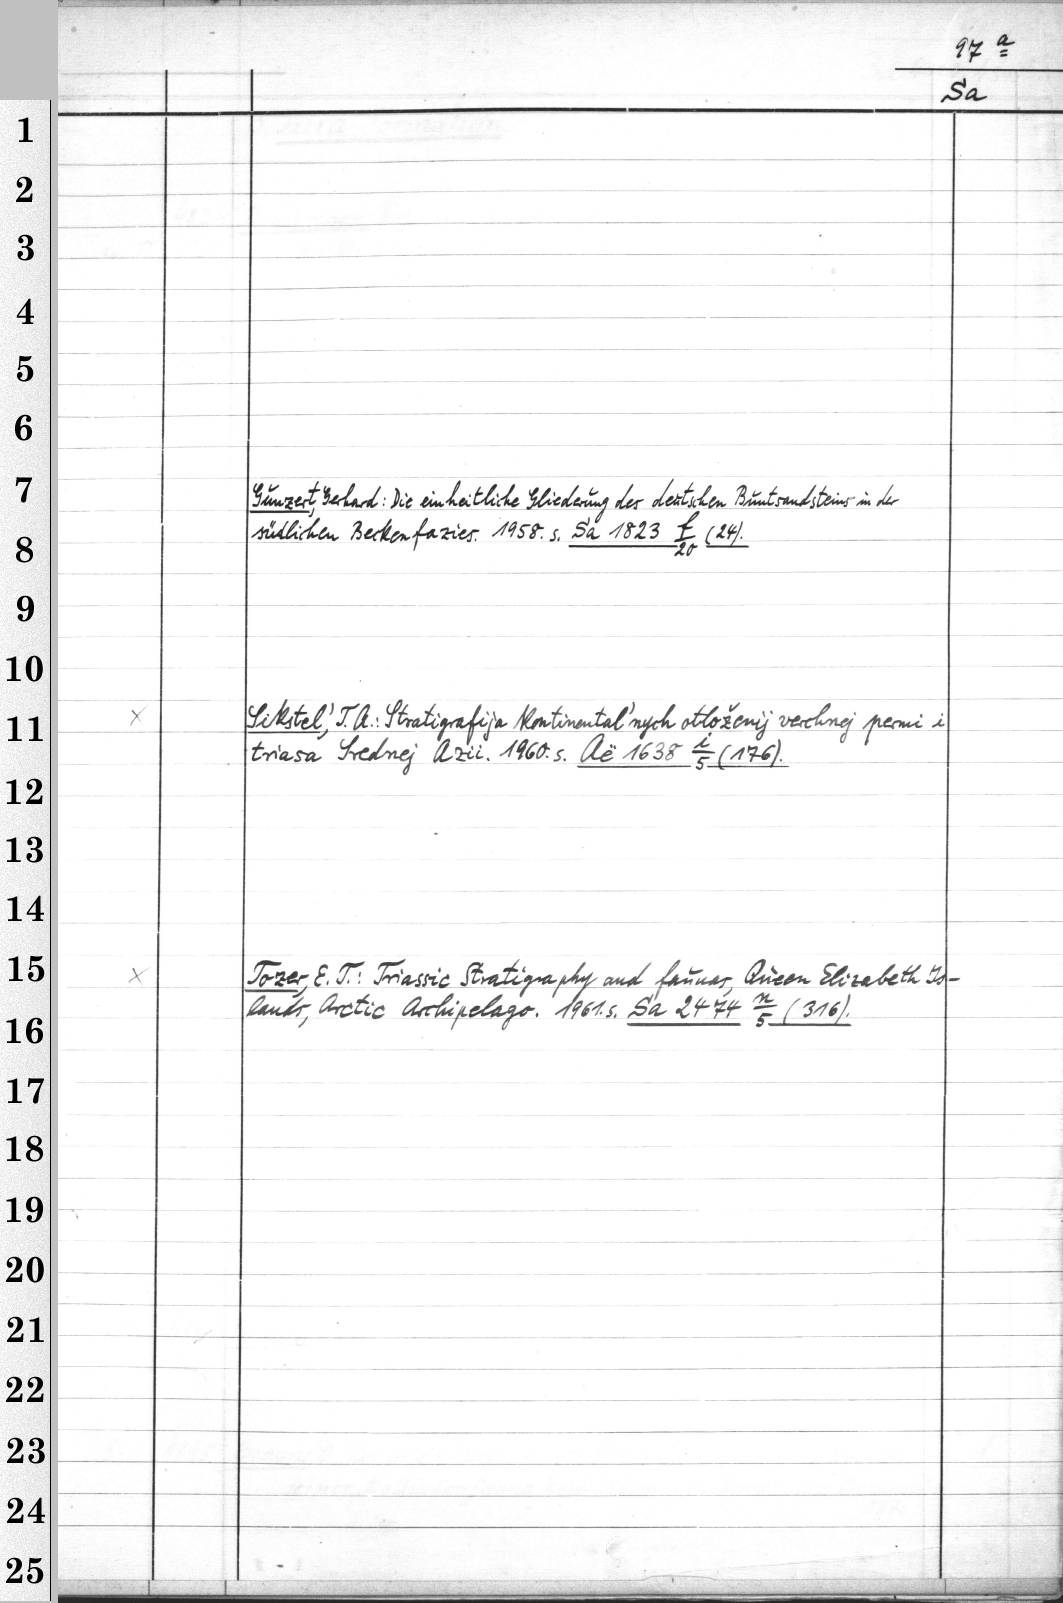 97 a
Sa
1
2
3
4
5
6
7
Gunzert, Gerhard: Die einheitliche Gliederung des deutschen Buntsandsteins in der
8
südlichen Beckenfazies. 1958. s. Sa 1823 f/20 (24).
9
10
11
Sikstel', T. A.: Stratigrafija kontinental'nych otloženij verchnej permi i
triasa Srednej Azii. 1960. s. Aë 1638 i/5 (176).
12
13
14
15
Tozer, E. T.: Triassic Stratigraphy and faunas, Queen Elizabeth Is-
lands, Arctic Archipelago. 1961. s. Sa 2474 n/5 (316).
16
17
18
19
20
21
22
23
24
25